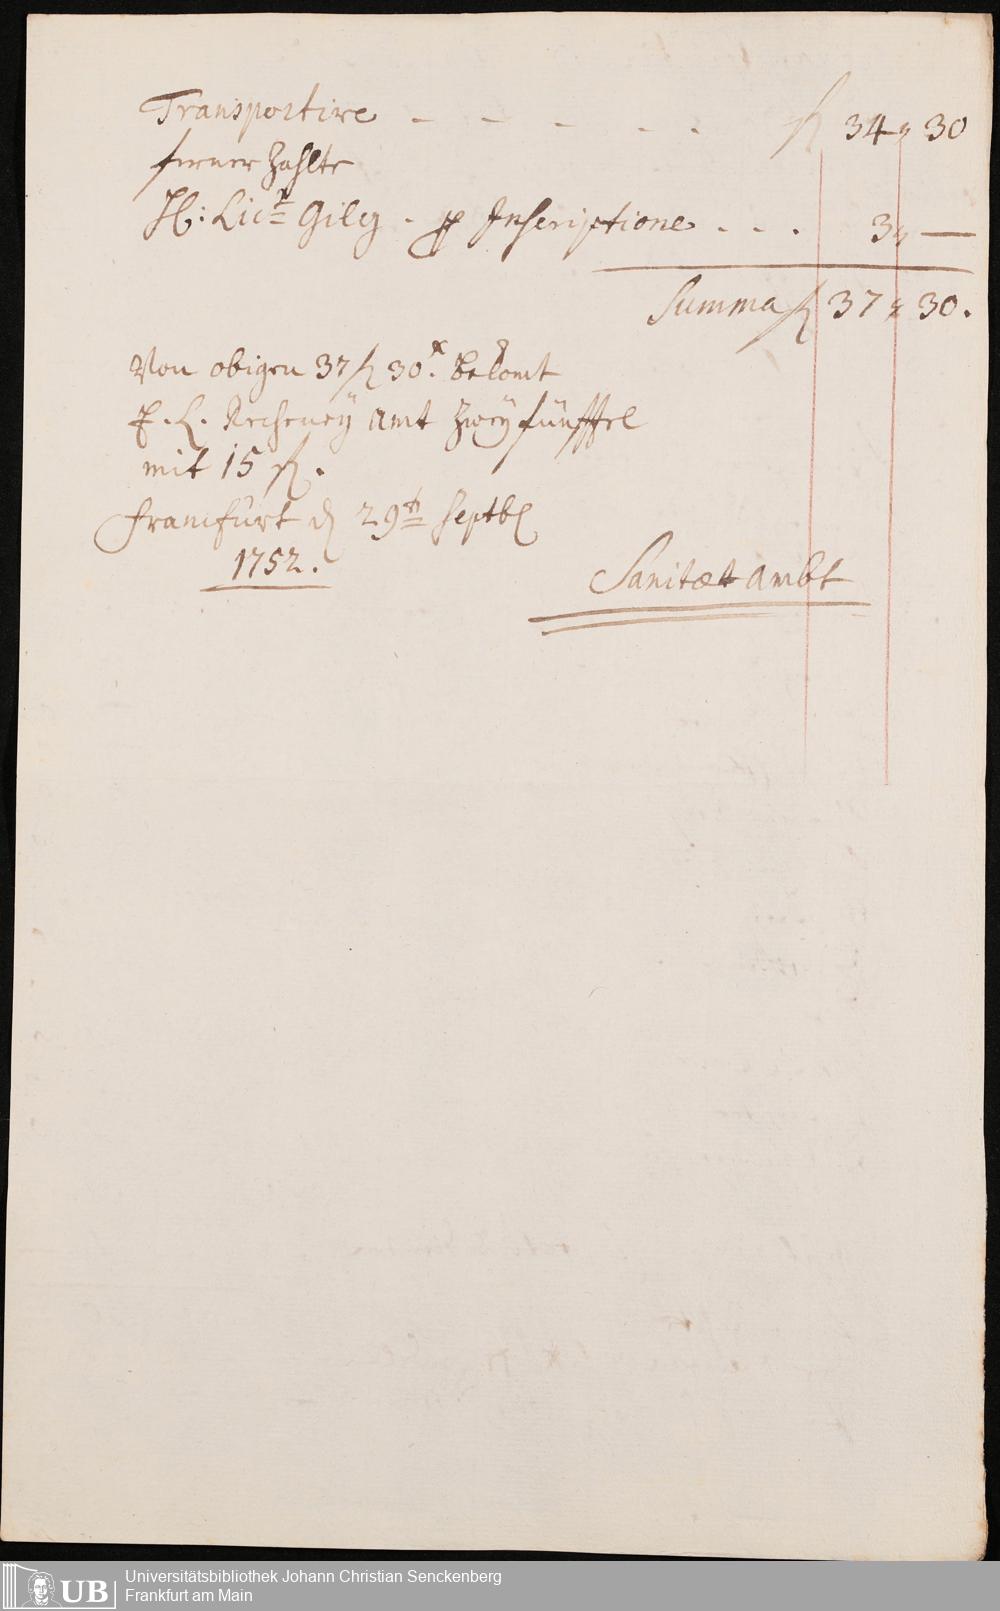 Transportire - - - - - fl 34 x 30
ferner Zahlte
H: Lict Gilg - p Inscriptione - - - 3 x —
Summa fl 37 x 30.
Von obigen 37 fl 30 x. bekomt
E. L. Recheney Amt Zweÿ fünfftel
mit 15 fl.
Franckfurt d 29ten Septbr
1752.
Sanitæt Ambt
UB
Universitätsbibliothek Johann Christian Senckenberg
Frankfurt am Main